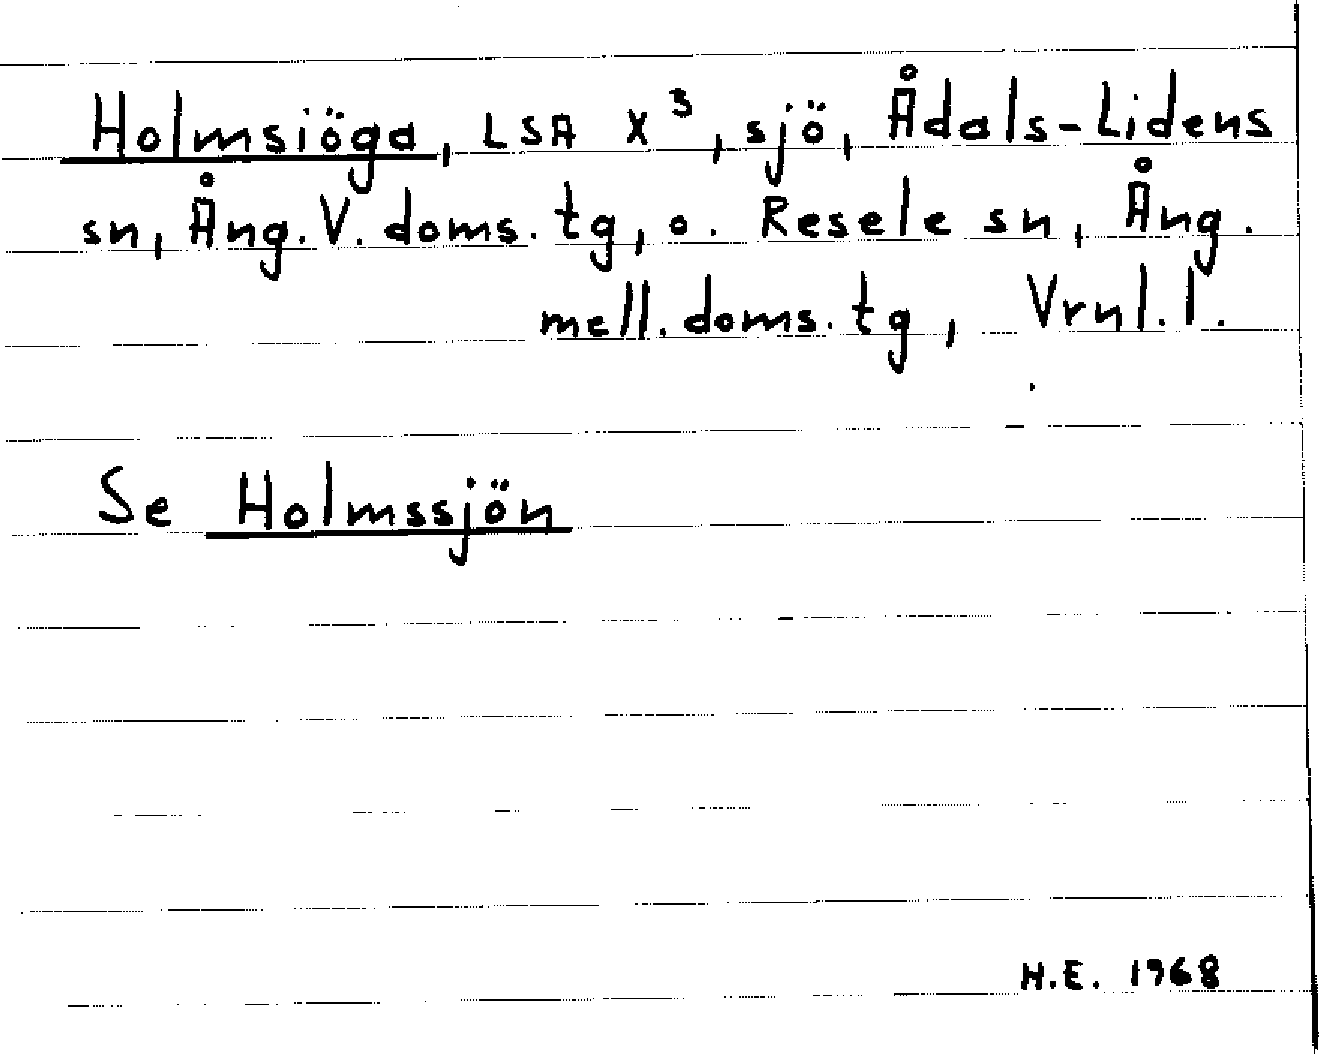 Holmsiöga, LSA X³, sjö, Ådals-Lidens
sn, Ång. V. doms. tg, o. Resele sn, Ång.
mell. doms. tg, Vrnl. l.
Se Holmssjön
H.E. 1968